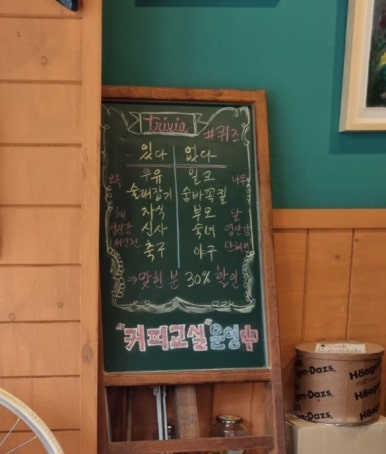 trivia
#퀴즈
있다 없다
우유 밀크
술래잡기 숨바꼭질
자식 부모
신사 숙녀
축구 야구
해 달
나무
⇒ 맞힌 분 30% 할인
"커피교실" 운영中
Häagen-Dazs